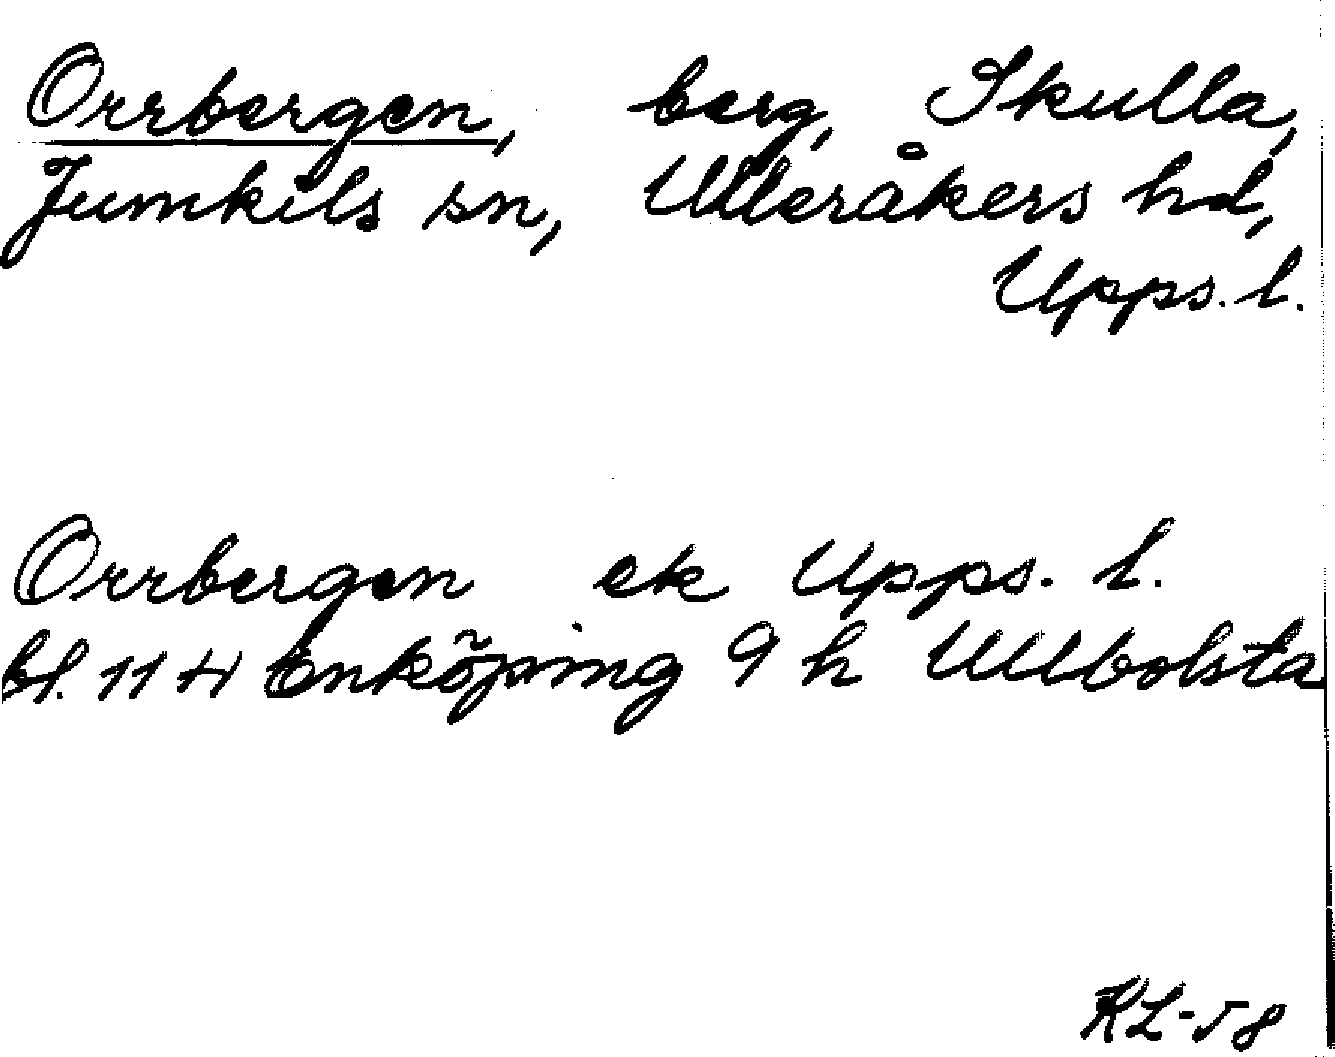 Orrbergen, berg, Skulla,
Jumkils sn, Ulleråkers hd,
Upps. l.
Orrbergen ek Upps. l.
bl. 11 H Enköping 9 h Ullbolsta
KL-58